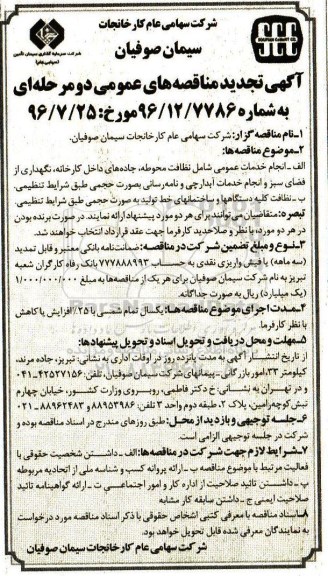 شرکت سهامی عام کارخانجات
سیمان صوفیان
SCC
شرکت سرمایه گذاری سیمان تأمین
(سهامی عام)
آگهی تجدید مناقصه‌های عمومی دو مرحله‌ای
به شماره ۹۶/۱۲/۷۷۸۶ مورخ: ۹۶/۷/۲۵
۱-نام مناقصه گزار: شرکت سهامی عام کارخانجات سیمان صوفیان.
۲-موضوع مناقصه‌ها:
الف - انجام خدمات عمومی شامل نظافت محوطه، جاده‌های داخل کارخانه، نگهداری از
فضای سبز و انجام خدمات آبدارچی و نامه‌رسانی بصورت حجمی طبق شرایط تنظیمی.
ب - نظافت کف دستگاهها و ساختمانهای خط تولید به صورت حجمی طبق شرایط تنظیمی.
تبصره: متقاضیان می‌توانند برای هر دو مورد پیشنهاد ارائه نمایند. در صورت برنده بودن
در هر دو مورد، با نظر و صلاحدید کارفرما جهت عقد قرارداد انتخاب خواهند شد.
۳-نوع و مبلغ تضمین شرکت در مناقصه: ضمانت‌نامه بانکی معتبر و قابل تمدید
(سه ماهه) یا فیش واریزی نقدی به حساب ۷۷۷۸۸۹۹۳ بانک رفاه کارگران شعبه
تبریز به نام شرکت سیمان صوفیان برای هر یک از مناقصه‌ها به مبلغ ۱/۰۰۰/۰۰۰/۰۰۰
(یک میلیارد) ریال به صورت جداگانه.
۴-مدت اجرای موضوع مناقصه ها: یکسال تمام شمسی با ۲۵٪ افزایش یا کاهش
با نظر کارفرما.
۵-مهلت و محل دریافت و تحویل اسناد و تحویل پیشنهادها:
از تاریخ انتشار آگهی به مدت پانزده روز در اوقات اداری به نشانی: تبریز، جاده مرند،
کیلومتر ۳۳، امور بازرگانی-پیمانهای شرکت سیمان صوفیان، تلفن: ۴۲۵۲۷۱۵۶-۰۴۱
و در تهران به نشانی: خ دکتر فاطمی، روبروی وزارت کشور، خیابان چهارم
نبش کوچه رامین، پلاک ۲، طبقه دوم واحد ۳ تلفن: ۸۸۹۵۳۹۸۶ و ۸۸۹۶۲۴۸۳-۰۲۱
۶-جلسه توجیهی و بازدید از محل: طبق روزهای مندرج در اسناد مناقصه بوده و
شرکت در جلسه توجیهی الزامی است.
۷-شرایط لازم جهت شرکت در مناقصه ها: الف - داشتن شخصیت حقوقی با
فعالیت مرتبط با موضوع مناقصه ب - ارائه پروانه کسب و شناسه ملی از اتحادیه مربوطه
پ - داشتن تائید صلاحیت از اداره کار و امور اجتماعی ت - ارائه گواهینامه تائید
صلاحیت ایمنی ج - داشتن سابقه کار مشابه
۸-اسناد مناقصه با معرفی کتبی اشخاص حقوقی با ذکر اسناد مناقصه مورد درخواست
به نمایندگان معرفی شده قابل تحویل خواهد بود.
شرکت سهامی عام کارخانجات سیمان صوفیان